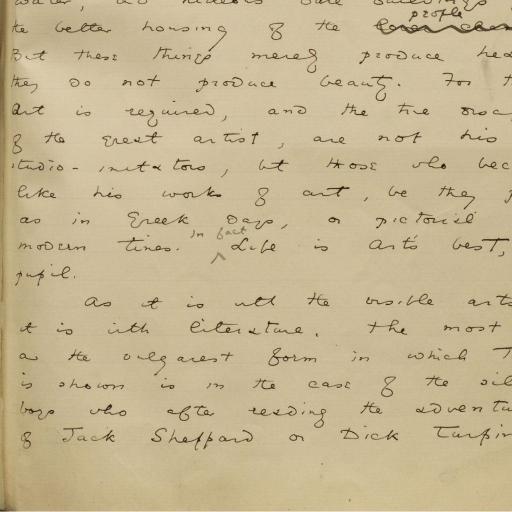 water, and hideous bare buildings
people
the better housing of the lower
But these things merely produce hea
they do not produce beauty. For t
Art is required, and the true disc
of the great artist, are not his
studio-imitators, but those who bec
like his works of art, be they p
as in Greek days, or pictorial
in fact
modern times. ^ Life is Art's best,
pupil.
As it is with the visible arts
it is with literature. The most
as the vulgarest form in which T
is shown is in the case of the sil
boys who after reading the adventu
of Jack Sheppard or Dick Turpin